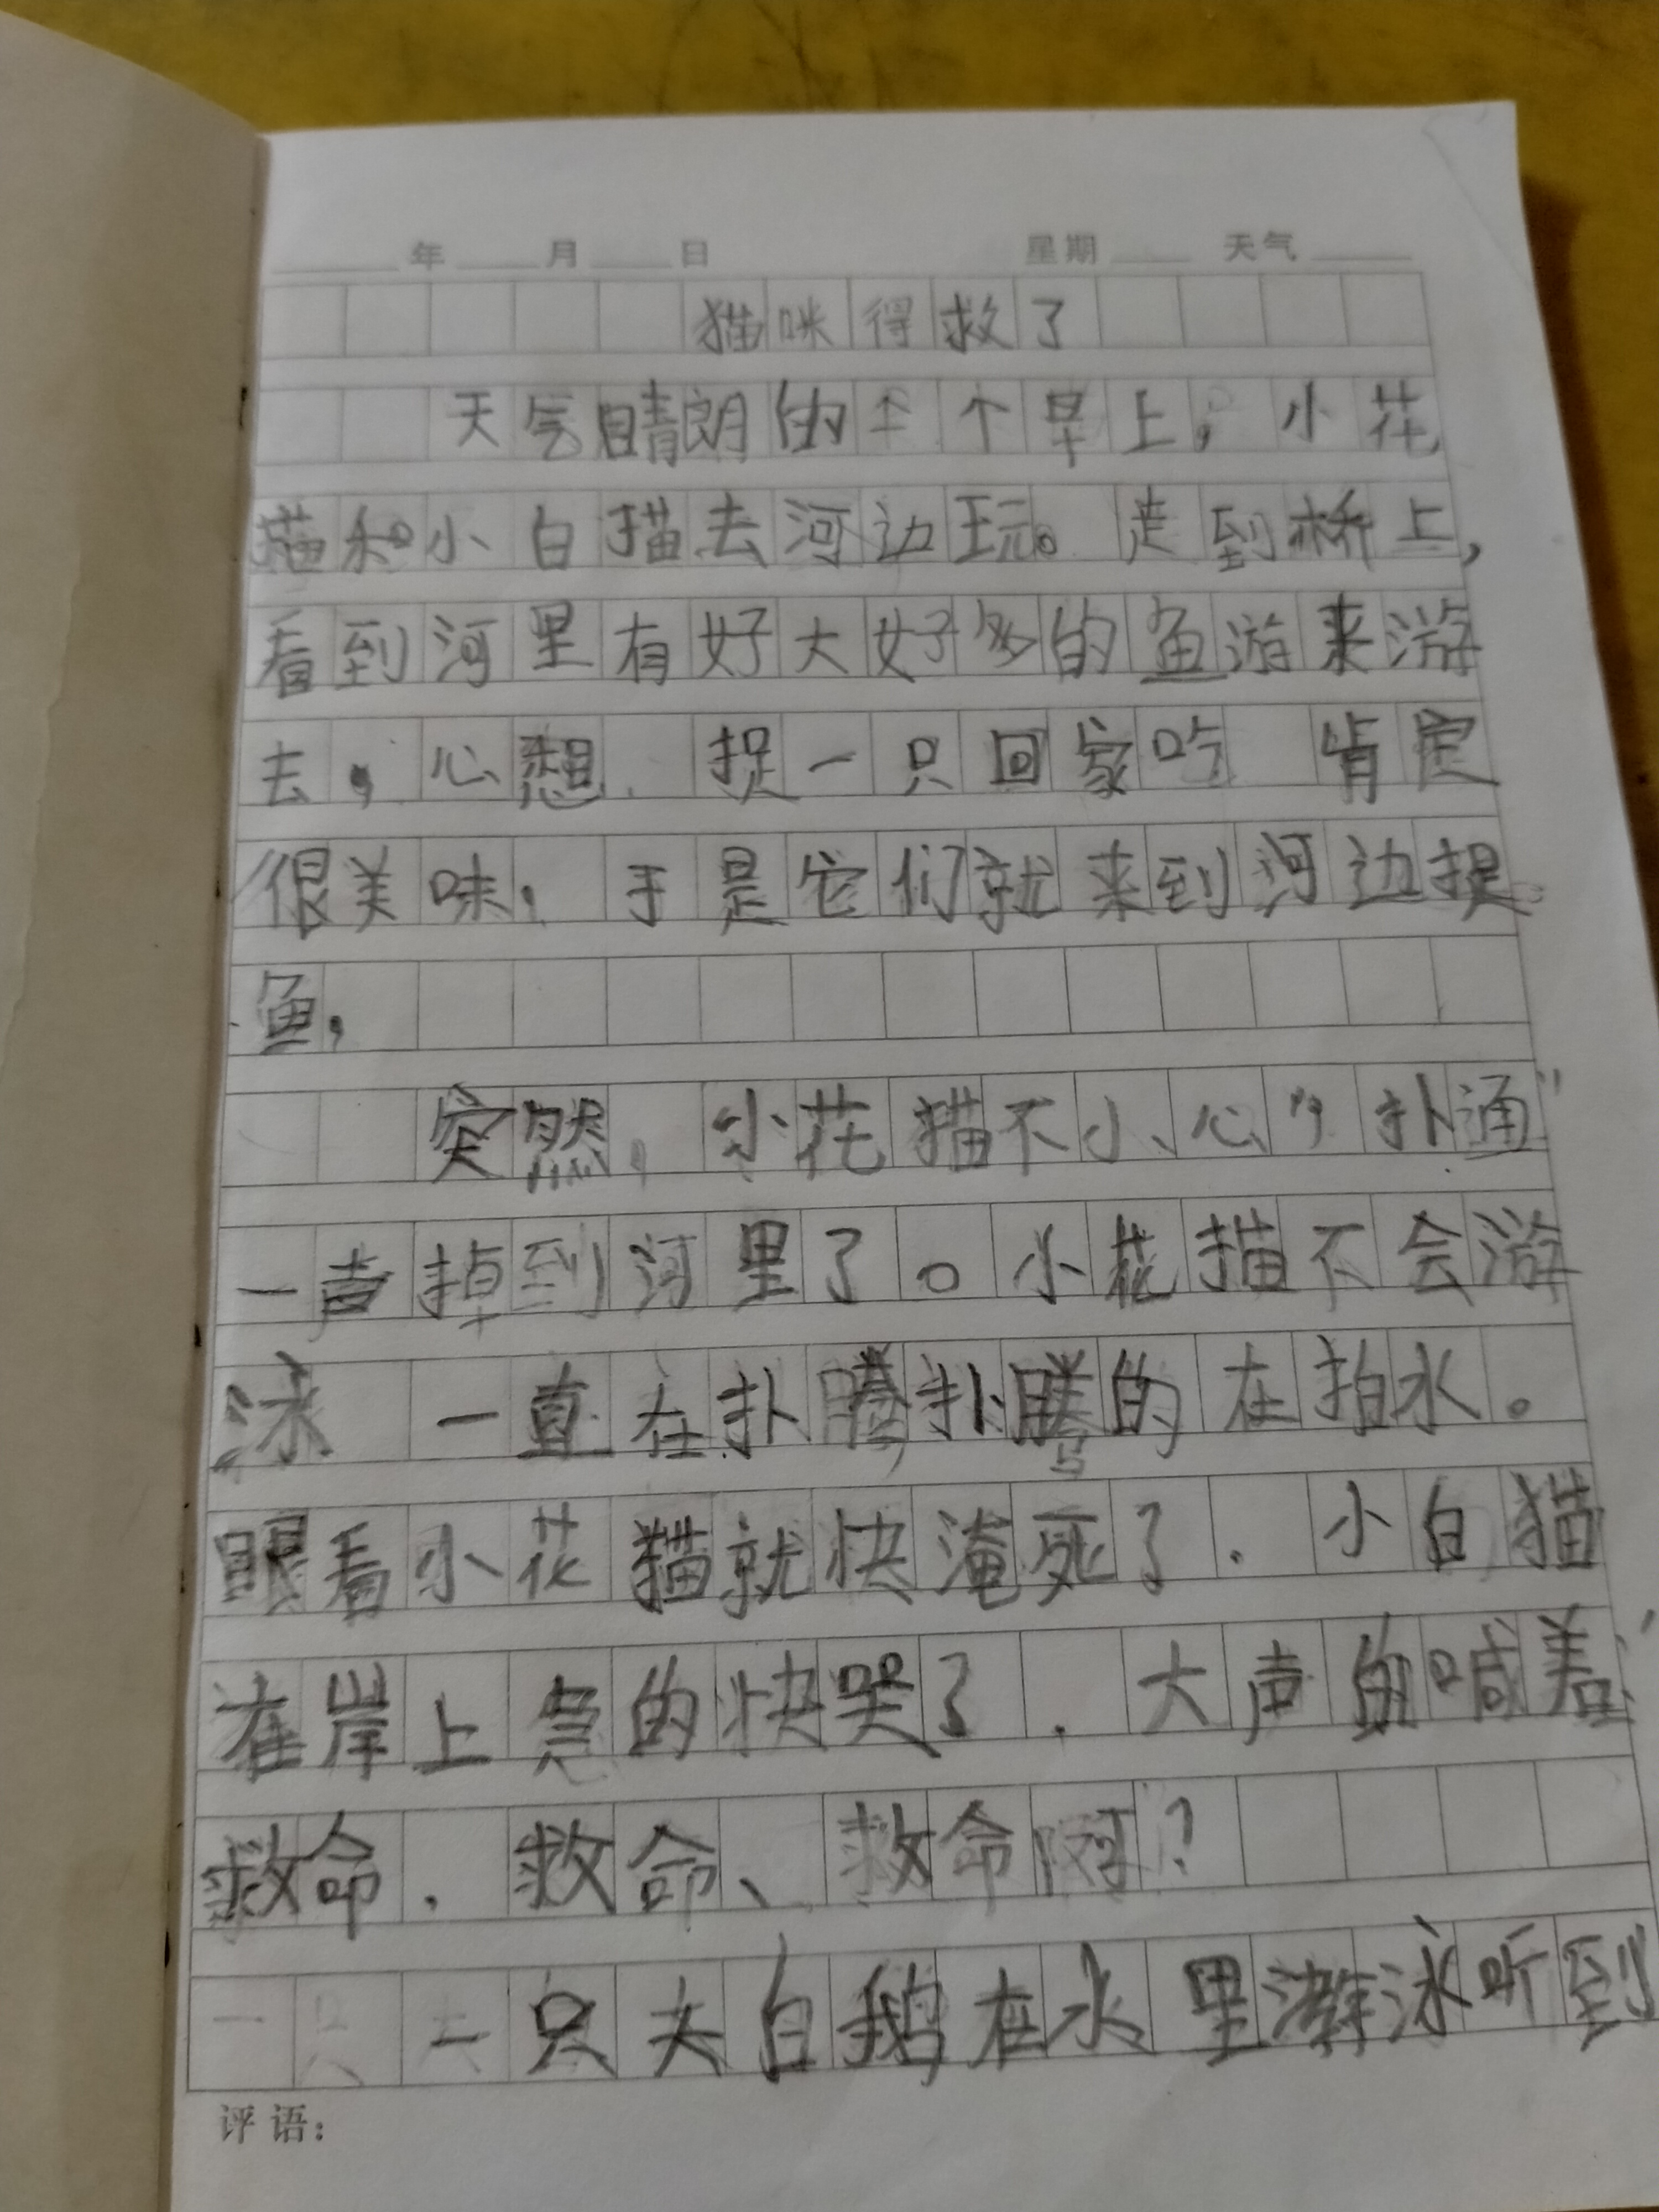 年 月 日 星期 天气
猫咪得救了
天气晴朗的一个早上，小花
猫和小白猫去河边玩。走到桥上，
看到河里有好大好多的鱼游来游
去，心想，捉一只回家吃 肯定
很美味，于是它们就来到河边捉
鱼，
突然，小花猫不小心"扑通"
一声掉到河里了。小花猫不会游
泳 一直在扑腾扑腾的在拍水。
眼看小花猫就快淹死了．小白猫
在岸上急的快哭了．大声的喊着：'
救命．救命、救命阿？
一只大白鹅在水里游泳听到
评语：